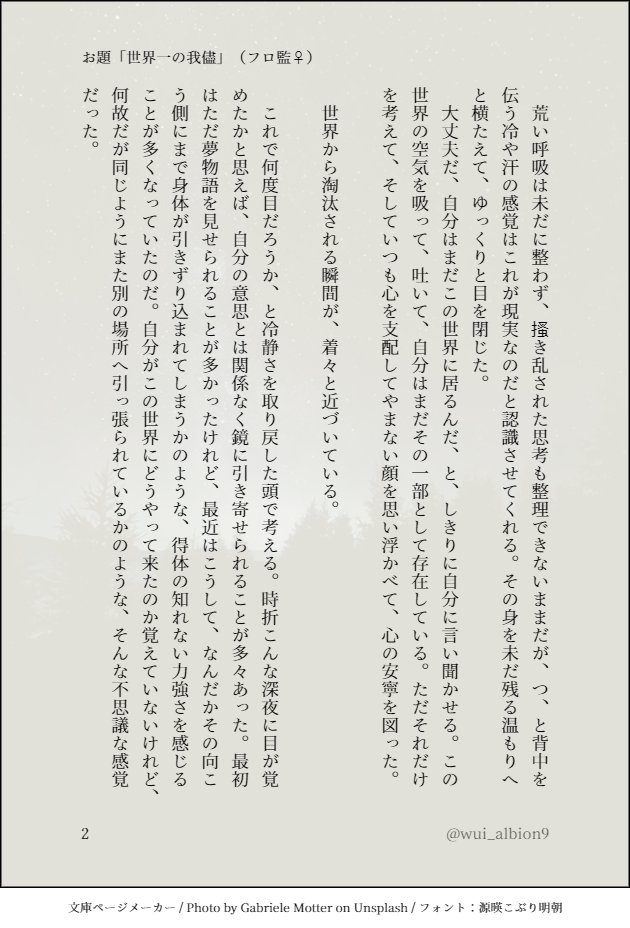 お題「世界一の我儘」（フロ監♀）
荒い呼吸は未だに整わず、掻き乱された思考も整理できないままだが、つ、と背中を
伝う冷や汗の感覚はこれが現実なのだと認識させてくれる。その身を未だ残る温もりへ
と横たえて、ゆっくりと目を閉じた。
大丈夫だ、自分はまだこの世界に居るんだ、と、しきりに自分に言い聞かせる。この
世界の空気を吸って、吐いて、自分はまだその一部として存在している。ただそれだけ
を考えて、そしていつも心を支配してやまない顔を思い浮かべて、心の安寧を図った。
世界から淘汰される瞬間が、着々と近づいている。
これで何度目だろうか、と冷静さを取り戻した頭で考える。時折こんな深夜に目が覚
めたかと思えば、自分の意思とは関係なく鏡に引き寄せられることが多々あった。最初
はただ夢物語を見せられることが多かったけれど、最近はこうして、なんだかその向こ
う側にまで身体が引きずり込まれてしまうかのような、得体の知れない力強さを感じる
ことが多くなっていたのだ。自分がこの世界にどうやって来たのか覚えていないけれど、
何故だが同じようにまた別の場所へ引っ張られているかのような、そんな不思議な感覚
だった。
2
@wui_albion9
文庫ページメーカー / Photo by Gabriele Motter on Unsplash / フォント：源暎こぶり明朝